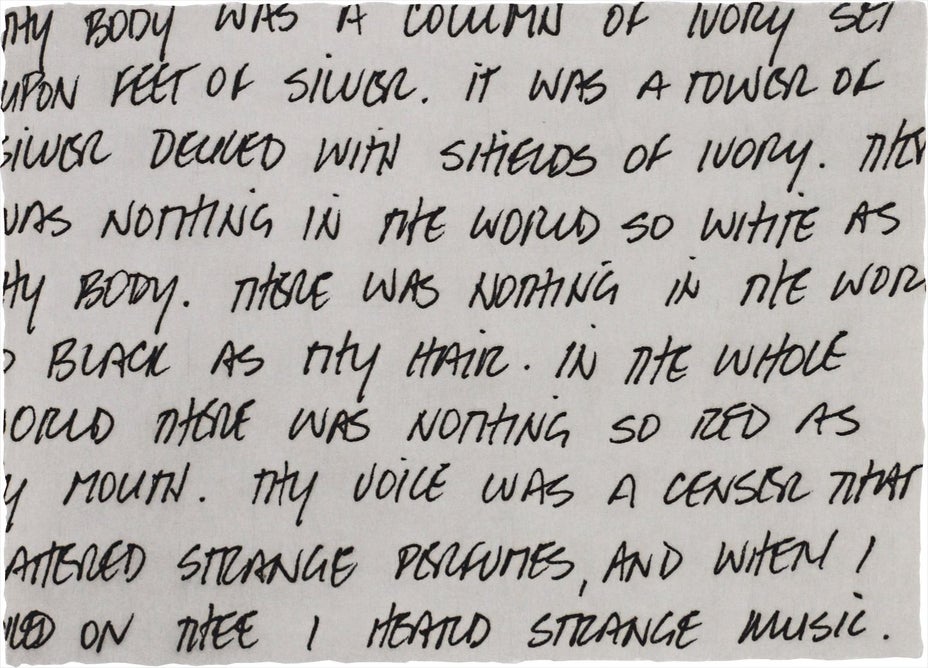 THY BODY WAS A COLUMN OF IVORY SET
UPON FEET OF SILVER. IT WAS A TOWER OF
SILVER DECKED WITH SHIELDS OF IVORY. THER
WAS NOTHING IN THE WORLD SO WHITE AS
HY BODY. THERE WAS NOTHING IN THE WORL
O BLACK AS THY HAIR. IN THE WHOLE
WORLD THERE WAS NOTHING SO RED AS
Y MOUTH. THY VOICE WAS A CENSER THAT
ATTERED STRANGE PERFUMES, AND WHEN I
ON THEE I HEARD STRANGE MUSIC.